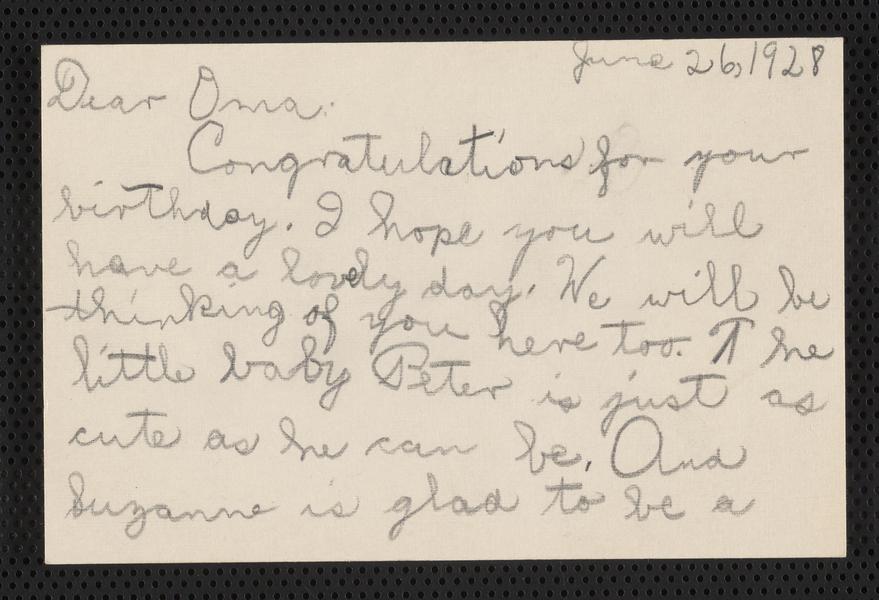 June 26, 1928
Dear Oma:
Congratulations for your
birthday. I hope you will
have a lovely day. We will be
thinking of you here too. The
little baby Peter is just as
cute as he can be. And
Suzanne is glad to be a